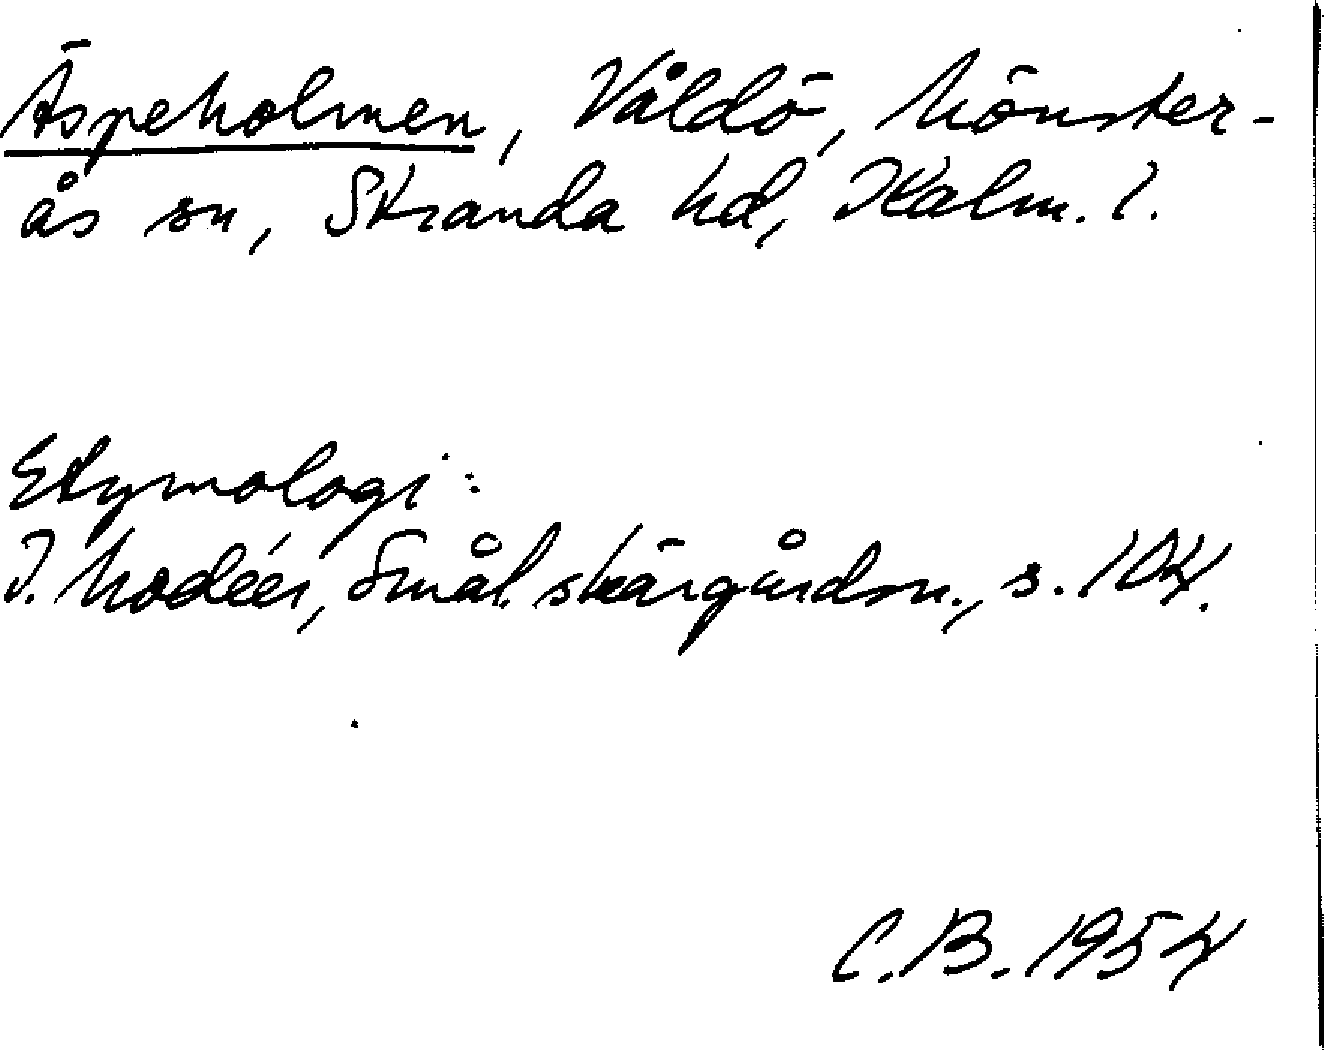 Äspeholmen, Våldö, Mönster-
ås sn, Stranda hd, Kalm. l.
Etymologi:
I. Modéer, Smål. skärgårdsn., s. 104.
C.B. 1954